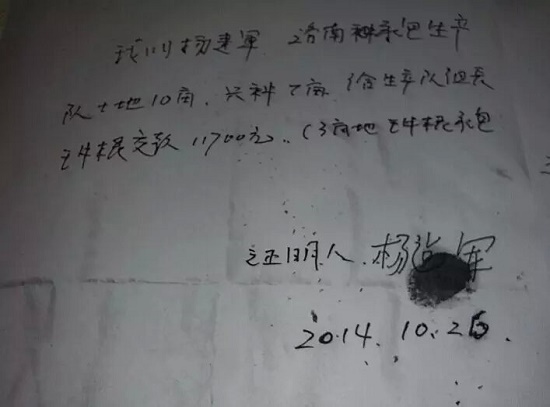 我叫杨建军 洛南种承包生产
队土地10亩、共种7亩、给生产队组长
王牛根交款11700元、(3亩地王牛根承包
证明人 杨建军
2014.10.26.